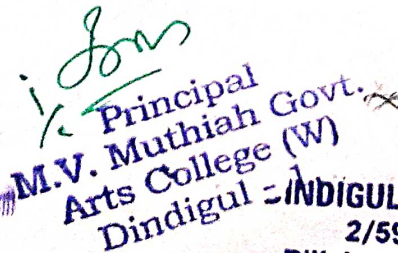 Principal
M.V. Muthiah Govt.
Arts College (W)
Dindigul - 1
INDIGUL
2/59